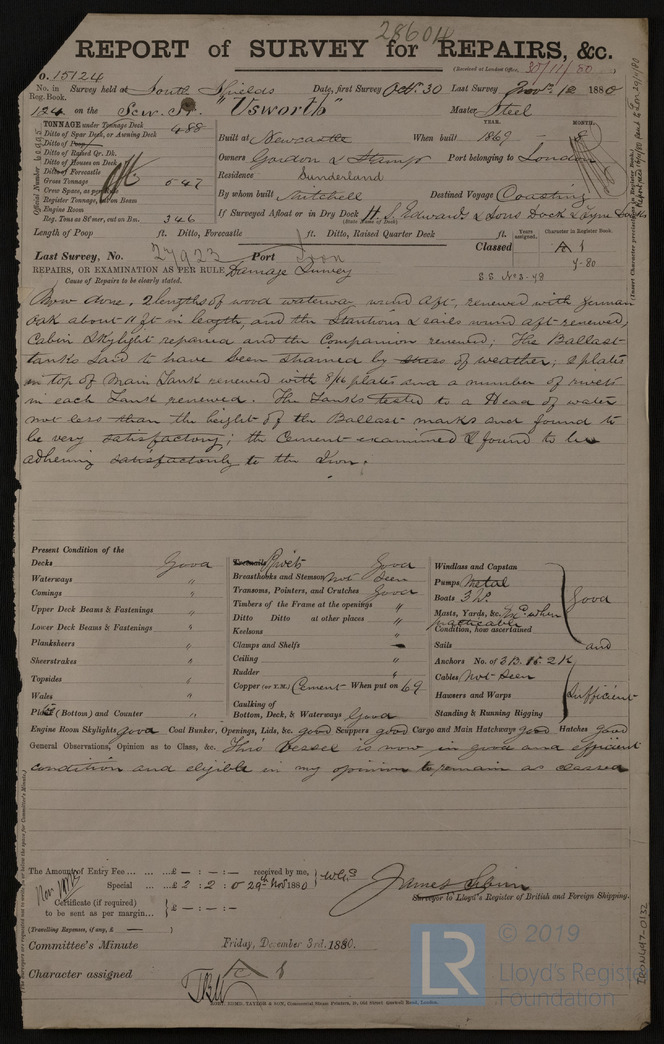 28604
REPORT of SURVEY for REPAIRS, &c.
(Received at London Office, 30/11/80
No. 15124
No. in Reg. Book. Survey held at South Shields Date, first Survey Octr. 30 Last Survey Novr. 12 1880
124 on the Scw. Sr. "Usworth" Master Steel
TONNAGE under Tonnage Deck 488
Ditto of Spar Deck, or Awning Deck
Ditto of Poop
Ditto of Raised Qr. Dk.
Ditto of Houses on Deck
Ditto of Forecastle
Gross Tonnage 547
Crew Space, as
Register Tonnage, cut on Beam
Engine Room
Reg. Tons as St'mer, cut on Bm. 346
Official Number
YEAR. MONTH.
Built at Newcastle When built 1869 - 8
Owners Gordon & Stamps Port belonging to London
Residence Sunderland
By whom built Mitchell Destined Voyage Coasting
If Surveyed Afloat or in Dry Dock H. S. Edwards & Sons Dock & Tyne
(State Name of Dock)
Length of Poop ft. Ditto, Forecastle ft. Ditto, Raised Quarter Deck ft.
Years assigned. Character in Register Book.
Last Survey, No. 27923 Port Iron Classed A 1
7-80
S.S. No 3-78
REPAIRS, OR EXAMINATION AS PER RULE, Damage Survey
Cause of Repairs to be clearly stated.
Now done. 2 lengths of wood waterway round aft, renewed with German
oak about 11 ft in length, and the Stantions & rails round aft renewed,
Cabin Skylight repaired and the Companion renewed; The Ballast
tanks said to have been strained by stress of weather; 2 plates
in top of Main Tank renewed with 8/16 plates and a number of rivets
in each Tank renewed. The Tanks tested to a Head of water
not less than the height of the Ballast marks and found to
be very satisfactory; the Cement examined & found to be
adhering satisfactorily to the Iron.
Present Condition of the
Decks Good
Waterways "
Comings "
Upper Deck Beams & Fastenings "
Lower Deck Beams & Fastenings "
Planksheers "
Sheerstrakes "
Topsides "
Wales "
Plates (Bottom) and Counter "
Treenails Rivets Good
Breasthooks and Stemson Not Seen
Transoms, Pointers, and Crutches Good
Timbers of the Frame at the openings "
Ditto Ditto at other places "
Keelsons "
Clamps and Shelfs —
Ceiling "
Rudder "
Copper (or Y.M.) Cement When put on 69
Caulking of
Bottom, Deck, & Waterways Good
Windlass and Capstan
Pumps Metal
Boats 3 No.
Masts, Yards, &c. Exd. when
practicable
Condition, how ascertained
Good
Sails and
Anchors No. of 3 B. 1 S. 2 K
Cables Not Seen
Hawsers and Warps Sufficient
Standing & Running Rigging
Engine Room Skylights good Coal Bunker, Openings, Lids, &c. good Scuppers good Cargo and Main Hatchways good Hatches Good
General Observations, Opinion as to Class, &c. This vessel is now in good and efficient
condition and eligible in my opinion to remain as classed
The Amount of Entry Fee ... ... ...£ — : — : — received by me,
Special ... ...£ 2 : 2 : 0 29th Nov 1880
Certificate (if required)
to be sent as per margin... £ — : — : —
(Travelling Expenses, if any, £ —)
Surveyor to Lloyd's Register of British and Foreign Shipping.
Committee's Minute Friday, December 3rd, 1880.
Character assigned A 1
IRON697-0132
LR
© 2019
Lloyd's Register
Foundation